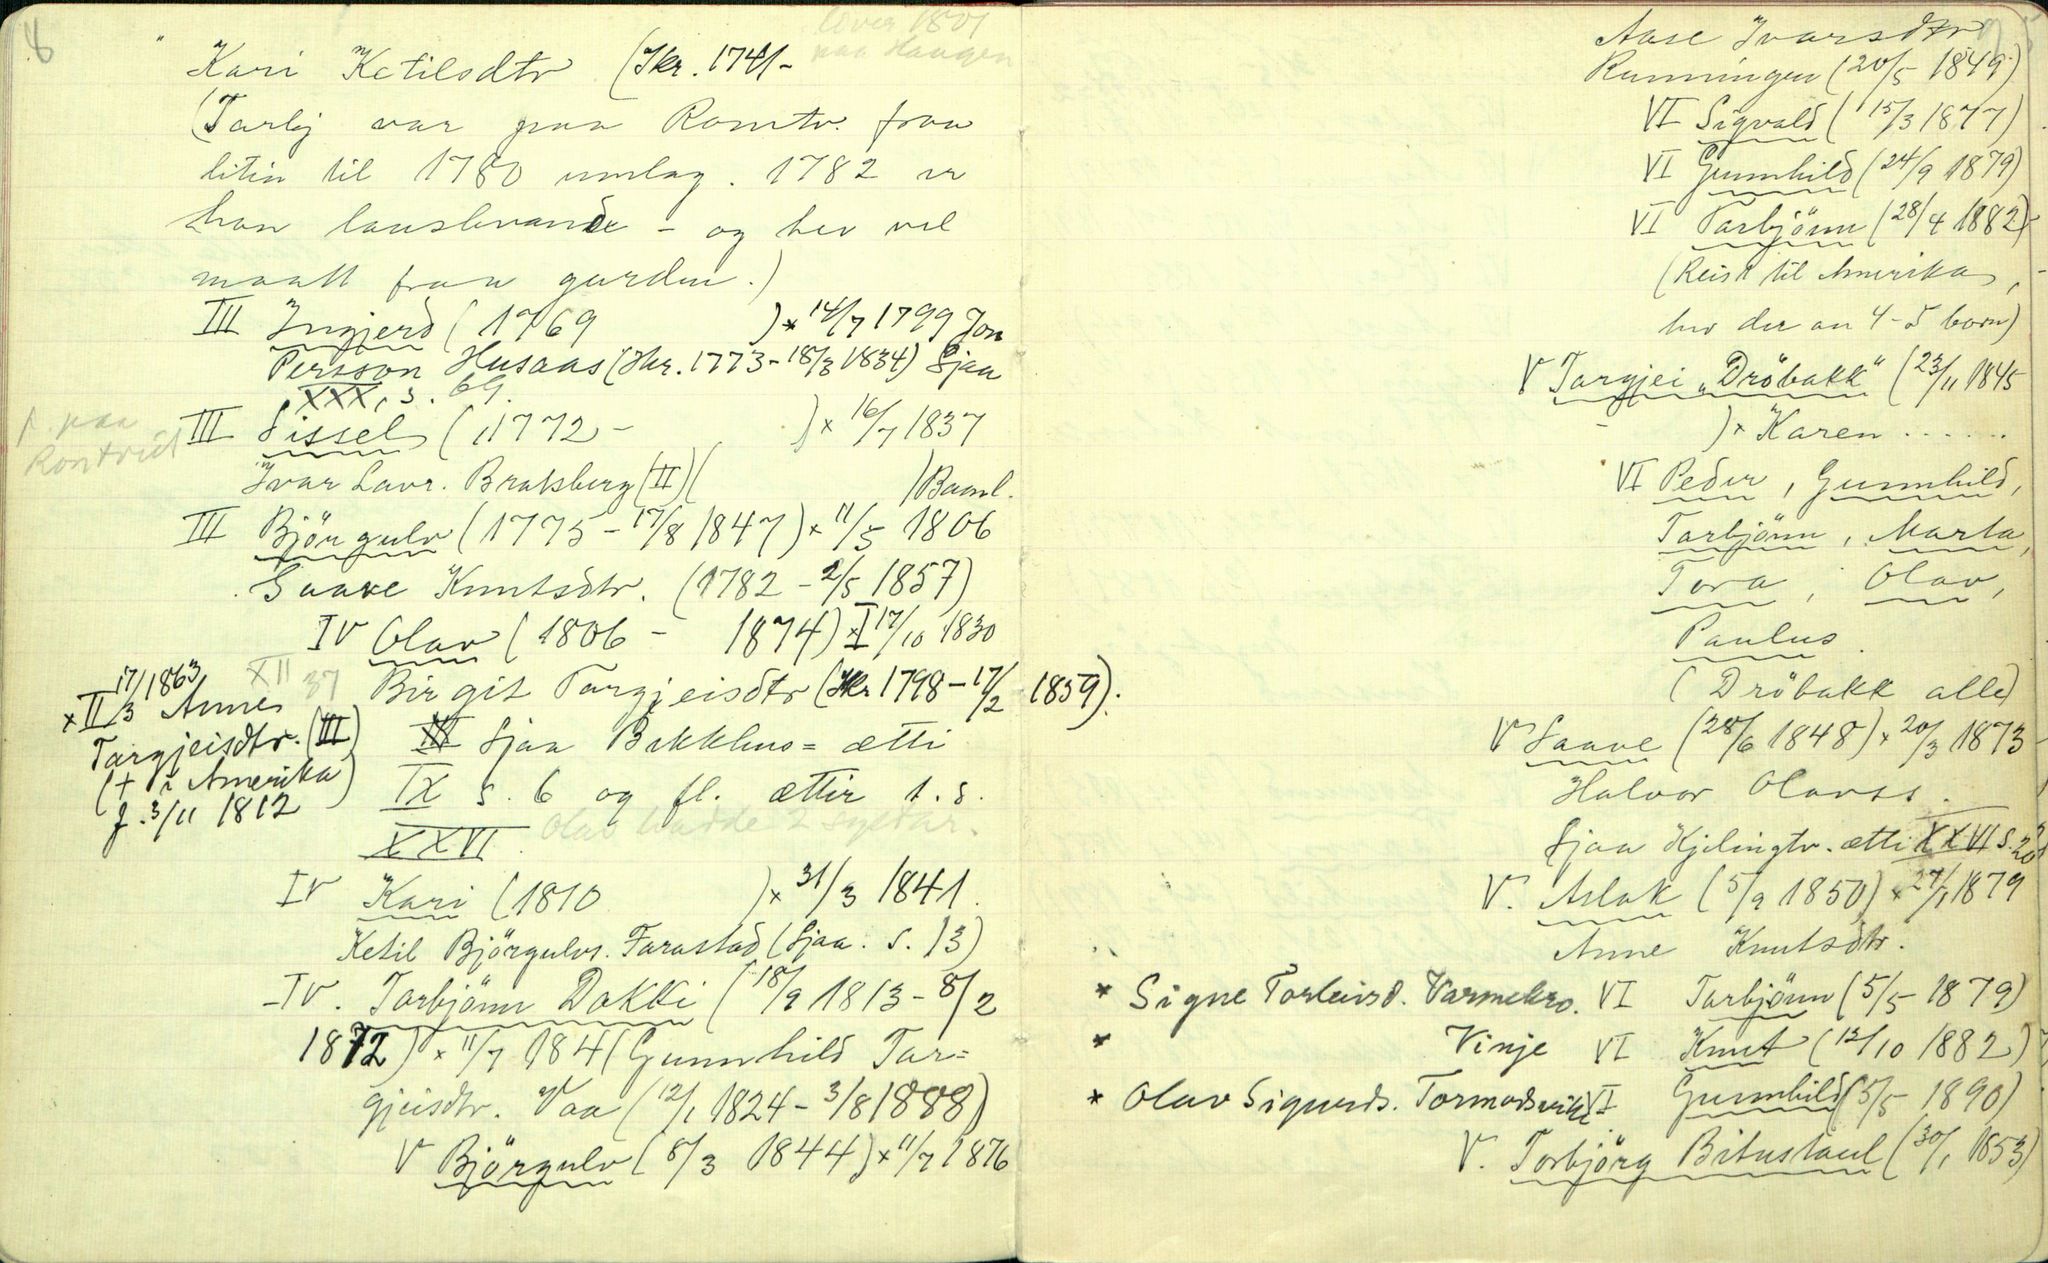 8
Lever 1801
paa Haugen
Kari Ketilsdtr (Ikr. 1741-
(Tarbj var paa Romtv. fraa
litin til 1780 umlag. 1782 er
han lauslevande - og hev vel
maatt fraa garden.)
III Ingjerd (1769 )x 14/7 1799 Jon
Persson Husaas (Ikr. 1773-18/3 1834) Sjaa
XXX, s. 69.
f. paa
III Sissel (1772- )x 16/7 1837
Ivar Lavr. Bratsberg (II) ( ) Baml.
III Björgulv (1775-17/8 1847) x 11/5 1806
Gaave Knutsdtr. (1782-2/5 1857)
IV Olav (1806- 1874) x I 17/10 1830
XII 37 Birgit Targjeisdtr (Ikr 1798-17/2 1859).
17/1863
x II/3 Anne
Targjeisdtr. (III)
(+ i Amerika)
f. 3/11 1812
Sjaa Bekkhus= ætti
IX s. 6 og fl. ættir t. s.
XXVI. Olav hadde 2
IV Kari (1810 )x 31/3 1841.
Ketil Björgulvs. Farastad (Sjaa. s. 13)
-IV. Tarbjönn Dokki (18/9 1813-8/2
1872) x 11/7 1841 Gunnhild Tar=
gjeisdtr. Vaa (12/1 1824-3/8 1888)
V Björgulv (8/3 1844) x 11/7 1876
9
Aase Ivarsdtr
Runningen (20/5 1849)
VI Sigvald (15/3 1877)
VI Gunnhild (24/9 1879)
VI Tarbjönn (28/4 1882)
(Reist til Amerika,
hev der an 4-5 born)
V Targjei "Dröbakk" (23/11 1845
- )x Karen ......
VI Peder, Gunnhild,
Tarbjönn, Marta,
Tora, Olav,
Paulus.
(Dröbakk alle)
V Gaave (28/6 1848) x 20/3 1873
Halvor Olavss.
Sjaa Kjilingtv. ætti XXVI s. 20
V. Aslak (5/9 1850) x 27/1 1879
Anne Knutsdtr.
* Signe Torleivsd. VI Tarbjönn (5/5 1879)
* Vinje VI Knut (12/10 1882)
* Olav Sigurds. Tormodsvik VI Gunnhild (5/5 1890)
V. Torbjörg Bitustaul (30/1 1853)